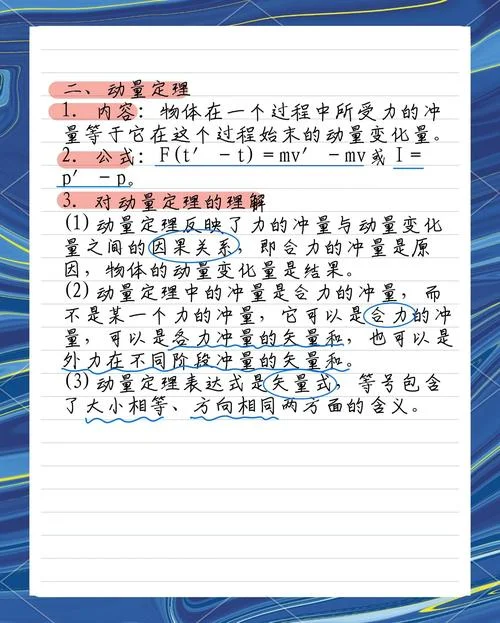 二、动量定理
1. 内容：物体在一个过程中所受力的冲
量等于它在这个过程始末的动量变化量。
2. 公式：F(t′－t)＝mv′－mv或I＝
p′－p。
3. 对动量定理的理解
(1)动量定理反映了力的冲量与动量变化
量之间的因果关系，即合力的冲量是原
因，物体的动量变化量是结果。
(2)动量定理中的冲量是合力的冲量，而
不是某一个力的冲量，它可以是合力的冲
量，可以是各力冲量的矢量和，也可以是
外力在不同阶段冲量的矢量和。
(3)动量定理表达式是矢量式，等号包含
了大小相等、方向相同两方面的含义。